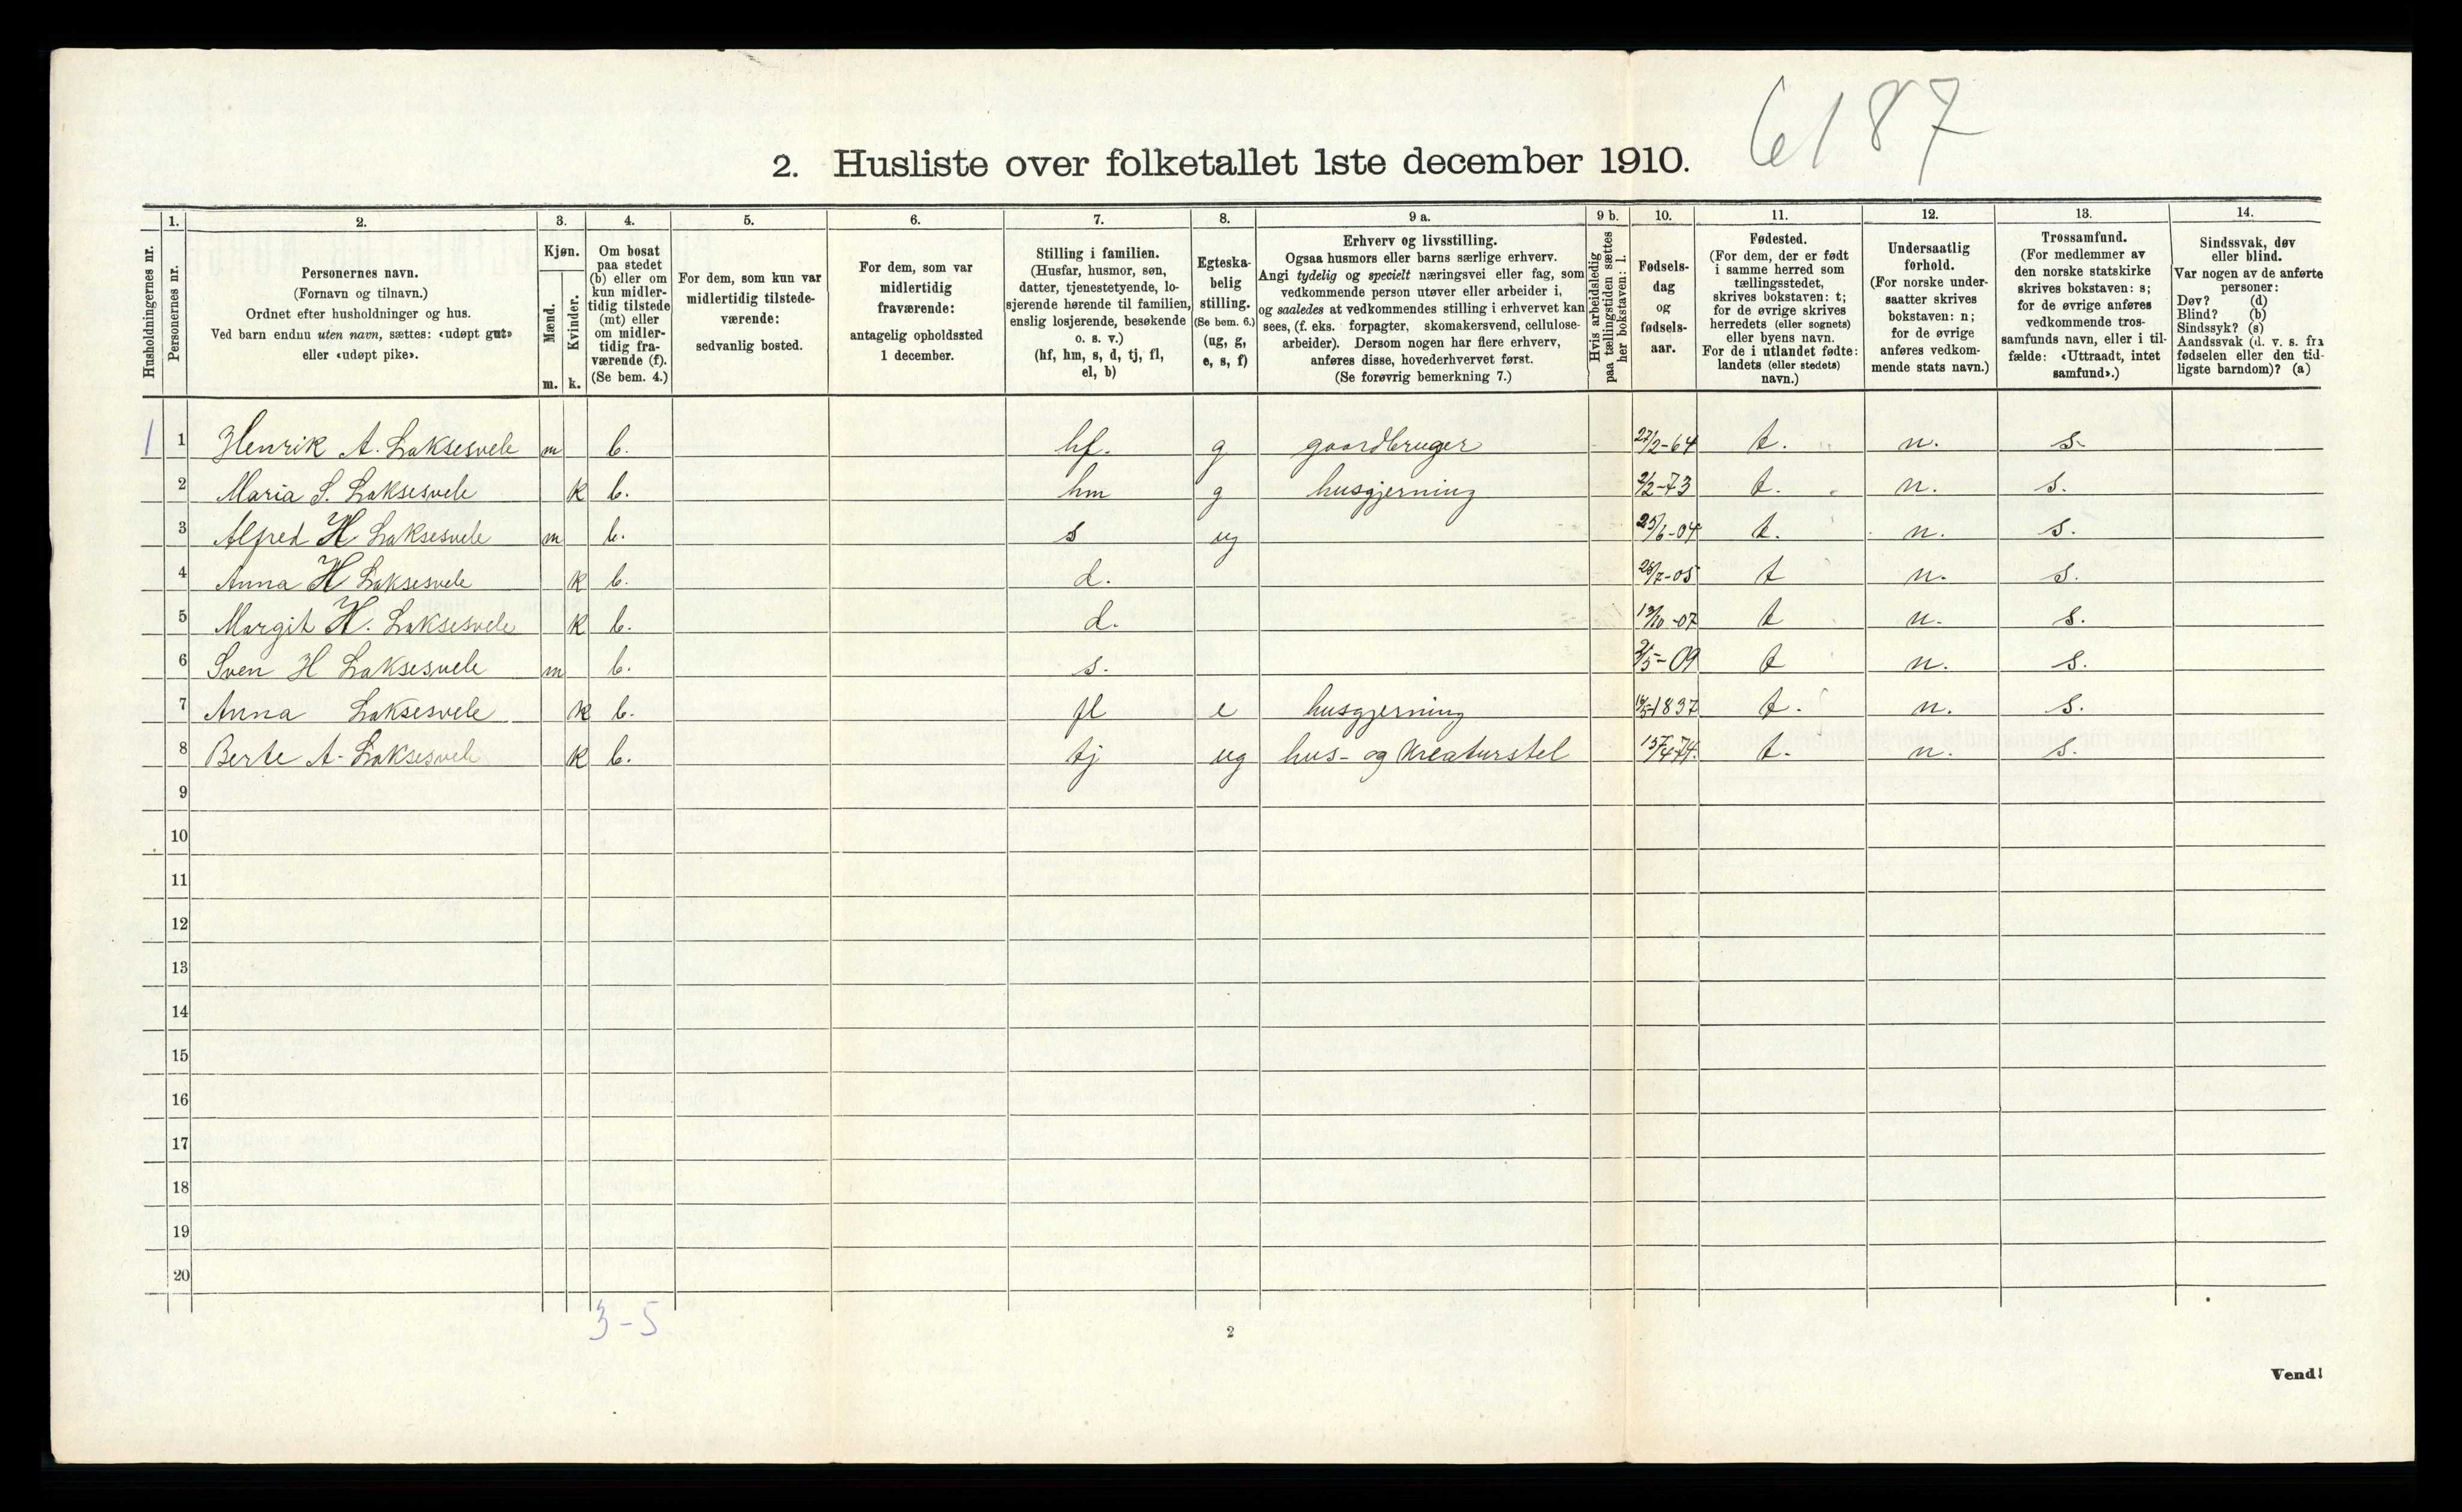 6187
2. Husliste over folketallet 1ste december 1910.
Husholdningernes nr.
1.
Personernes nr.
2.
Personernes navn.
(Fornavn og tilnavn.)
Ordnet efter husholdninger og hus.
Ved barn endnu uten navn, sættes: «udøpt gut»
eller «udøpt pike».
3.
Kjøn.
Mænd.
Kvinder.
m. k.
4.
Om bosat
paa stedet
(b) eller om
kun midler-
tidig tilstede
(mt) eller
om midler-
tidig fra-
værende (f).
(Se bem. 4.)
5.
For dem, som kun var
midlertidig tilstede-
værende:
sedvanlig bosted.
6.
For dem, som var
midlertidig
fraværende:
antagelig opholdssted
1 december.
7.
Stilling i familien.
(Husfar, husmor, søn,
datter, tjenestetyende, lo-
sjerende hørende til familien,
enslig losjerende, besøkende
o. s. v.)
(hf, hm, s, d, tj, fl,
el, b)
8.
Egteska-
belig
stilling.
(Se bem. 6.)
(ug, g,
e, s, f)
9 a.
Erhverv og livsstilling.
Ogsaa husmors eller barns særlige erhverv.
Angi tydelig og specielt næringsvei eller fag, som
vedkommende person utøver eller arbeider i,
og saaledes at vedkommendes stilling i erhvervet kan
sees, (f. eks. forpagter, skomakersvend, cellulose-
arbeider). Dersom nogen har flere erhverv,
anføres disse, hovederhvervet først.
(Se forøvrig bemerkning 7.)
9 b.
Hvis arbeidsledig
paa tællingstiden sættes
her bokstaven: l.
10.
Fødsels-
dag
og
fødsels-
aar.
11.
Fødested.
(For dem, der er født
i samme herred som
tællingsstedet,
skrives bokstaven: t;
for de øvrige skrives
herredets (eller sognets)
eller byens navn.
For de i utlandet fødte:
landets (eller stedets)
navn.)
12.
Undersaatlig
forhold.
(For norske under-
saatter skrives
bokstaven: n;
for de øvrige
anføres vedkom-
mende stats navn.)
13.
Trossamfund.
(For medlemmer av
den norske statskirke
skrives bokstaven: s;
for de øvrige anføres
vedkommende tros-
samfunds navn, eller i til-
fælde: «Uttraadt, intet
samfund».)
14.
Sindssvak, døv
eller blind.
Var nogen av de anførte
personer:
Døv? (d)
Blind? (b)
Sindssyk? (s)
Aandssvak (d. v. s. fra
fødselen eller den tid-
ligste barndom)? (a)
1 1 Henrik A. Laksesvele m b. hf. g gaardbruger 27/2-64 t. n. s.
2 Maria S. Laksesvele k b. hm g husgjerning 2/2-73 t. n. s.
3 Alfred H Laksesvele m b. s ug 25/6-04 t. n. s.
4 Anna H Laksesvele k b. d. t n. s.
5 Margit H. Laksesvele k b. d. t n. s.
6 Sven H Laksesvele m b. s. t n. s.
7 Anna Laksesvele k b. fl e husgjerning t. n. s.
8 Berte A. Laksesvele k b. tj ug hus- og Kreaturstel 15/4-74. t. n. s.
9
10
11
12
13
14
15
16
17
18
19
20
3-5
2
Vend!